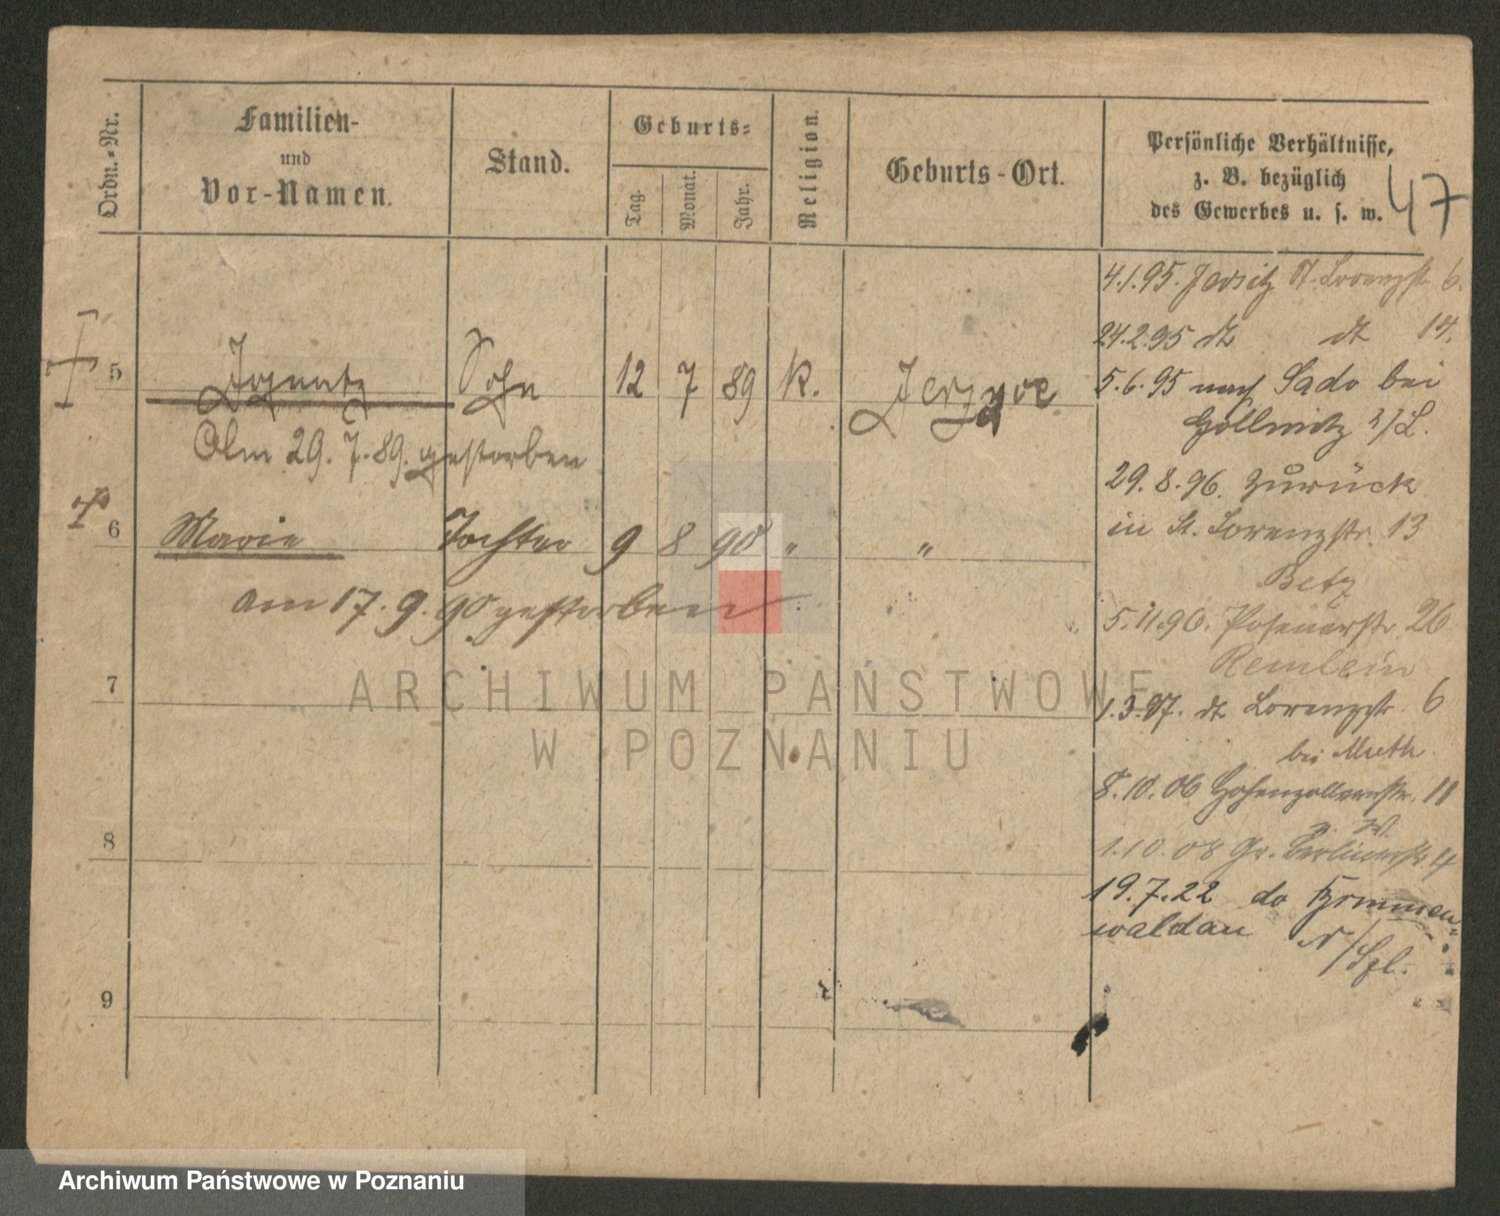 Ordn.-Nr.
Familien-
und
Vor-Namen.
Stand.
Geburts-
Tag.
Monat.
Jahr.
Religion.
Geburts-Ort.
Persönliche Verhältnisse,
z. B. bezüglich
des Gewerbes u. s. w.
47
5 Ignatz Sohn 12 7 89 K. Jerzyce
Am 29.7.89. gestorben
6 Marie Tochter 9 8 90 " "
am 17.9.90 gestorben
7
8
9
4.1.95. Jersitz St. Lorenzstr. 6.
24.2.95 dt dt 14.
5.6.95 nach Sado bei
Göllnitz /L.
29.8.96. zurück
in St. Lorenzstr. 13
Betz
5.11.96. Posenerstr. 26
Remlein
1.3.97. dt Lorenzstr. 6
bei Muth
8.10.06 Hohenzollernstr. 11
1.10.08 Gr. Berlinerstr. 4
19.7.22 do
waldau N/Schl.
ARCHIWUM PAŃSTWOWE
W POZNANIU
Archiwum Państwowe w Poznaniu